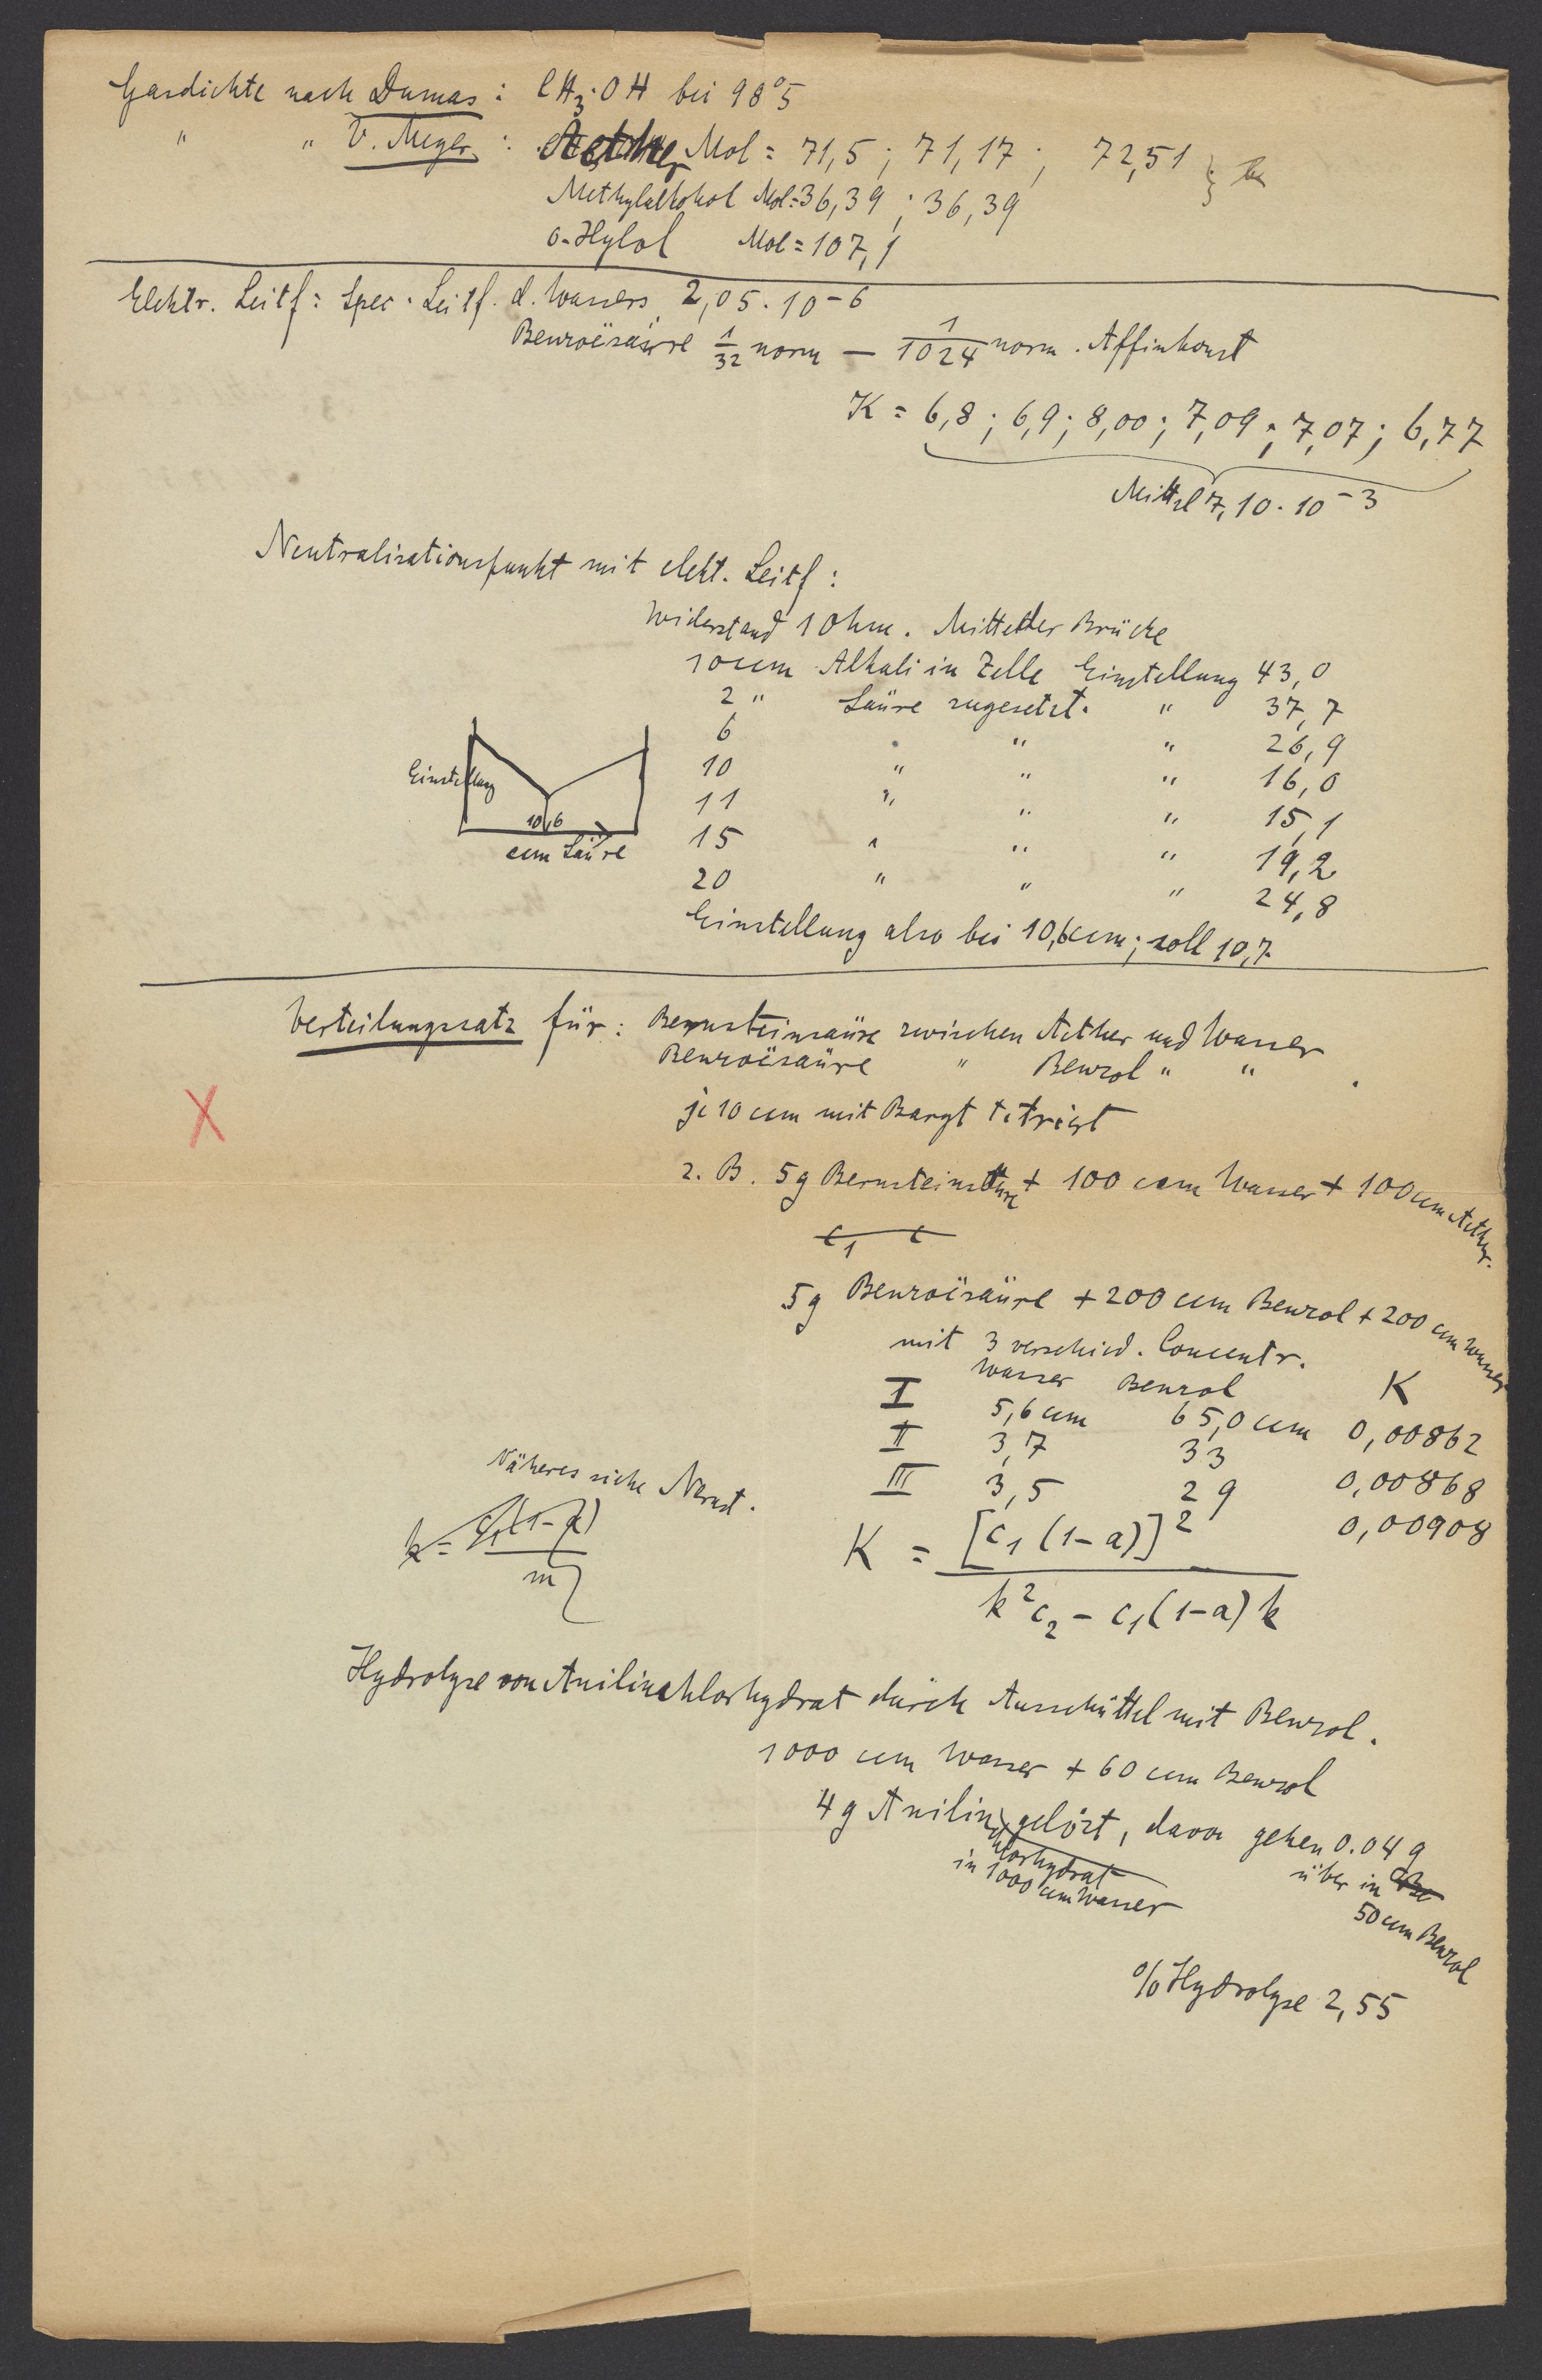 Gasdichte nach Dumas : CH3·OH bei 98°5
" " V. Meyer : Aether Mol = 71,5 ; 71,17 ; 72,51 }
Methylalkohol Mol = 36,39 ; 36,39
o-Xylol Mol = 107,1
Elektr. Leitf : Spec. Leitf. d. Wassers 2,05 . 10–6
Benzoësäure 1/32 norm — 1/1024 norm . Affinkonst
K = 6,8 ; 6,9 ; 8,00 ; 7,09 ; 7,07 ; 6,77
Mittel 7,10 . 10–3
Neutralisationspunkt mit elekt. Leitf :
Widerstand 1 Ohm . Mittel der Brücke
10 ccm Alkali in Zelle Einstellung 43,0
2 " Säure zugesetzt. " 37,7
6 " " " 26,9
10 " " " 16,0
11 " " " 15,1
15 " " " 19,2
20 " " " 24,8
Einstellung
10,6
ccm Säure
Einstellung also bei 10,6 ccm ; soll 10,7
Verteilungssatz für : Bernsteinsäure zwischen Aether und Wasser
Benzoësäure " Benzol " " .
X
je 10 ccm mit Baryt titriert
z. B. 5 g Bernsteinsäure + 100 ccm Wasser + 100 ccm Aether.
c1 c
5 g Benzoësäure + 200 ccm Benzol + 200 ccm Wasser
mit 3 verschied. Concentr.
Wasser Benzol K
I 5,6 ccm 65,0 ccm 0,00862
II 3,7 33 0,00868
III 3,5 29 0,00908
Näheres siehe Nernst .
k = c1(1–a) / m
K = [c1 (1–a)]2 / k2c2 – c1(1–a) k
Hydrolyse von Anilinchlorhydrat durch Ausschüttel mit Benzol .
1000 ccm Wasser + 60 ccm Benzol
4 g Anilinchlorhydrat gelöst, davon gehen 0.04 g
in 1000 ccm Wasser
über in
50 ccm Benzol
% Hydrolyse 2,55